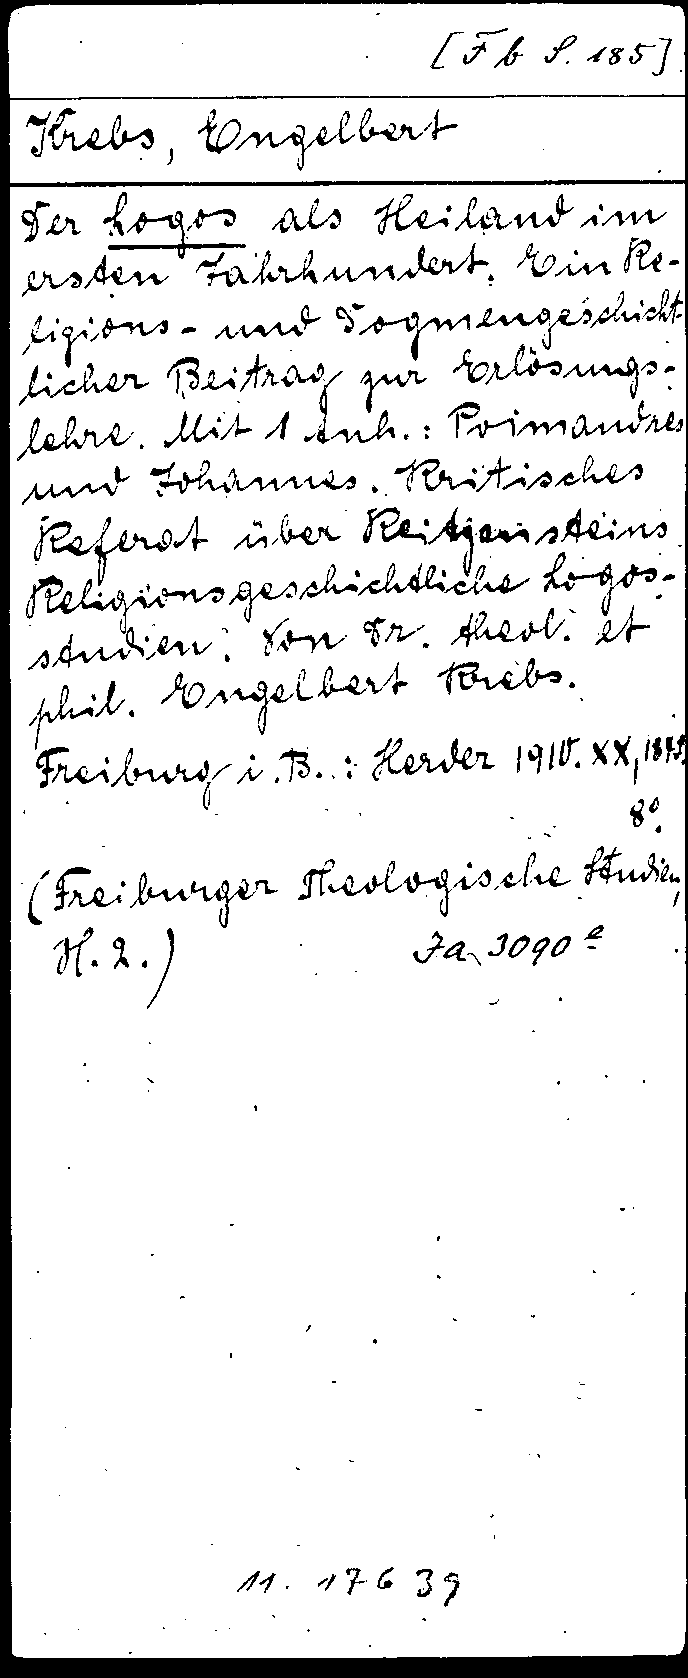 [F b S. 185]
Krebs, Engelbert
Der Logos als Heiland im
ersten Jahrhundert. Ein Re-
ligions- und Dogmengeschicht-
licher Beitrag zur Erlösungs-
lehre. Mit 1 Anh.: Poimandres
und Johannes. Kritisches
Referat über Reitzensteins
Religionsgeschichtliche Logos-
studien. Von Dr. theol. et
phil. Engelbert Krebs.
Freiburg i. B.: Herder 1910. XX,
8°.
(Freiburger Theologische Studien,
H. 2.) Ja 3090 a
11. 17639